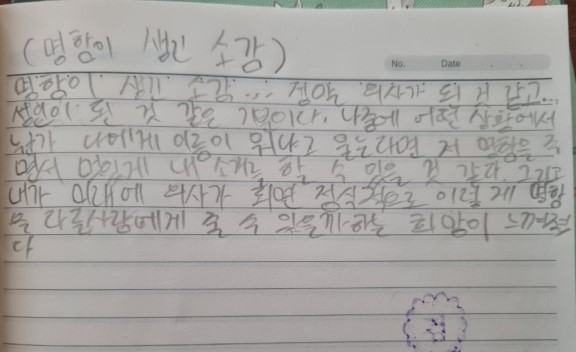 (명함이 생긴 소감)
No. Date . .
명함이 생긴 소감... 정말 의사가 된 것 같고...
성인이 된 것 같은 기분이다. 나중에 어떤 상황에서
남가 나에게 이름이 뭐냐고 묻는다면 저 명함을 주
면서 멋있게 내 소개를 할 수 있을 것 같다. 그리고
내가 미래에 의사가 되면 정식적으로 이렇게 명함
을 다른사람에게 줄 수 있을까하는 희망이 느껴졌
다